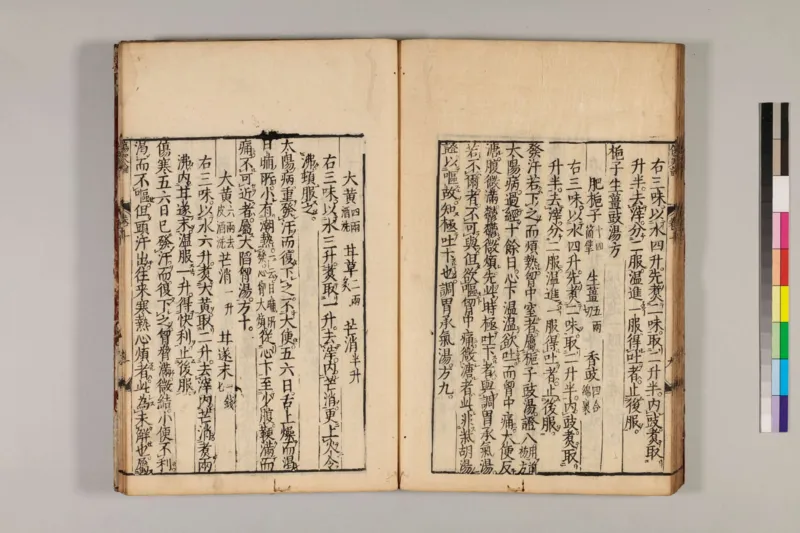 右三味以水四升先煮二味取二升半内豉煮取一
升半去滓分二服温進一服得吐者止後服
梔子生薑豉湯方
肥梔子十四箇擘 生薑五兩切 香豉四合綿裹
右三味以水四升先煮二味取二升半内豉煮取一
升半去滓分二服温進一服得吐者止後服
發汗若下之而煩熱胷中窒者屬梔子豉湯證八用前初方
太陽病過經十餘日心下温温欲吐而胷中痛大便反
溏腹微滿鬱鬱微煩先此時極吐下者與調胃承氣湯
若不爾者不可與但欲嘔胷中痛微溏者此非柴胡湯
證以嘔故知極吐下也調胃承氣湯方九
大黄四兩酒洗 甘草二兩 芒消半升
右三味以水三升煮取一升去滓内芒消更上火令
沸頓服之
太陽病重發汗而復下之不大便五六日舌上燥而渴
日晡所小有潮熱一云日晡所發心胷大煩從心下至少腹鞕滿而
痛不可近者屬大陷胷湯方十
大黄六兩去皮酒洗 芒消一升 甘遂末一錢匕
右三味以水六升煮大黄取二升去滓内芒消煮兩
沸内甘遂末温服一升得快利止後服
傷寒五六日已發汗而復下之胷脇滿微結小便不利
渴而不嘔但頭汗出往來寒熱心煩者此為未解也屬